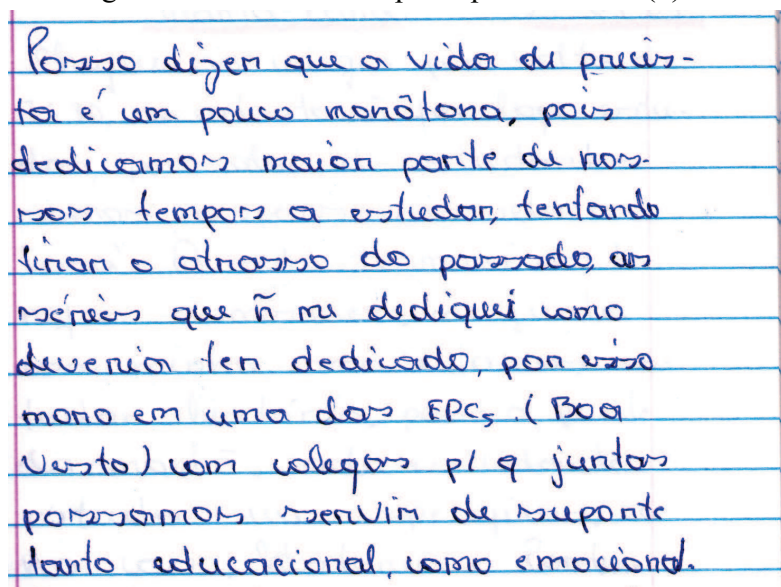 Posso dizer que a vida de precis-
ta é um pouco monôtona, pois
dedicamos maior parte de nos-
sos tempos a estudar, tentando
tirar o atrasso do passado, as
séries que ñ me dediquei como
deveria ter dedicado, por isso
moro em uma das EPCs. (Boa
Vista) com colegas p/ q juntas
possamos servir de suporte
tanto educacional, como emocional.